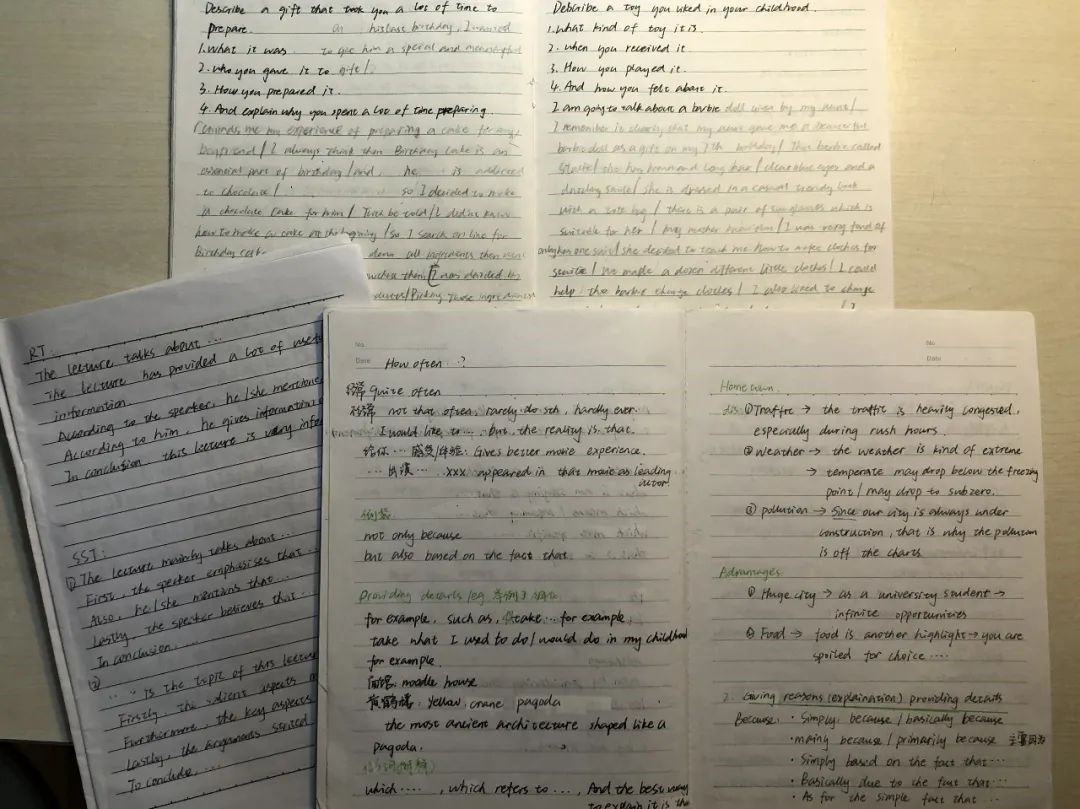 Describe a gift that took you a lot of time to
prepare. on his last birthday, I wanted
1. What it was. to give him a special and meaningful
2. who you gave it to gift/
3. How you prepared it.
4. And explain why you spent a lot of time preparing.
reminds me my experience of preparing a cake for my
boyfriend / I always think then Birthday Cake is an
essential part of birthday / and, he is addicted
to chocolate / so I decided to make
a chocolate cake for him / Truth be told / I didn't know
how to make a cake at the beginning / so I search online for
birthday cake down all ingredients then
them. [I was decided by
Picking those ingredients
Debcribe a toy you uked in your childhood.
1. what kind of toy it is.
2. when you received it.
3. How you played it.
4. And how you felt about it.
I am going to talk about a barbie doll given by my aunt /
I remember it clearly that my aunt gave me a beautiful
barbie doll as a gift on my 7th birthday / This barbie called
she has brown and long hair / clear blue eyes and a
smile / she is dressed in a casual trendy look
with a tote bag / there is a pair of sunglasses which is
suitable for her / my mother / I was very fond of
only has one suit / she decided to teach me how to make clothes for
/ We made a dozen different little clothes / I could
help the barbie change clothes / I also liked to change
RT:
The lecture talks about ...
The lecture has provided a lot of
information.
According to the speaker, he/she mentione
According to him, he gives information
In conclusion this lecture is very
SST:
① The lecture mainly talks about ...
First, the speker emphasises that ...
Also he/she mentions that ...
Lastly, the speaker believes that ...
In conclusion, ...
②
" " is the topic of this lecture
Firstly, the salient aspects
Furthermore, the key aspects
Lastly, the arguments
To conclude, ...
No.
Date How often ...?
经常 quite often
不经常 not that often, rarely do sth, hardly ever.
I would like to ... but the reality is that.
给你 ... 感受/体验: Gives better movie experience.
... 出演 ... xxx appeared in that movie as leading
actor.
not only because
but also based on the fact that.
Providing details / eg
for example, such as, take ... for example,
take what I used to do / would do in my childhood
for example.
面馆: noodle house
黄鹤楼: yellow crane pagoda
the most ancient architecture shaped like a
pagoda.
which ...., which refers to ..., And the best way
to explain it is the
No
Date
Home town.
dis: ① Traffic → the traffic is heavily congested,
especially during rush hours.
② Weather → the weather is kind of extreme
→ temperate may drop below the freezing
point / may drop to subzero.
③ pollution → Since our city is always under
construction, that is why the pollution
is off the charts
Advantages
① Huge city → as a university student →
infinite opportunities
② Food → food is another highlight → you are
spoiled for choice ....
2. Giving reasons (explaination) providing details
Because: · Simply because / basically because
· mainy because / primarily because 主要因为
· Simply based on the fact that ...
· Basically due to the fact that ...
· As for the simple fact that